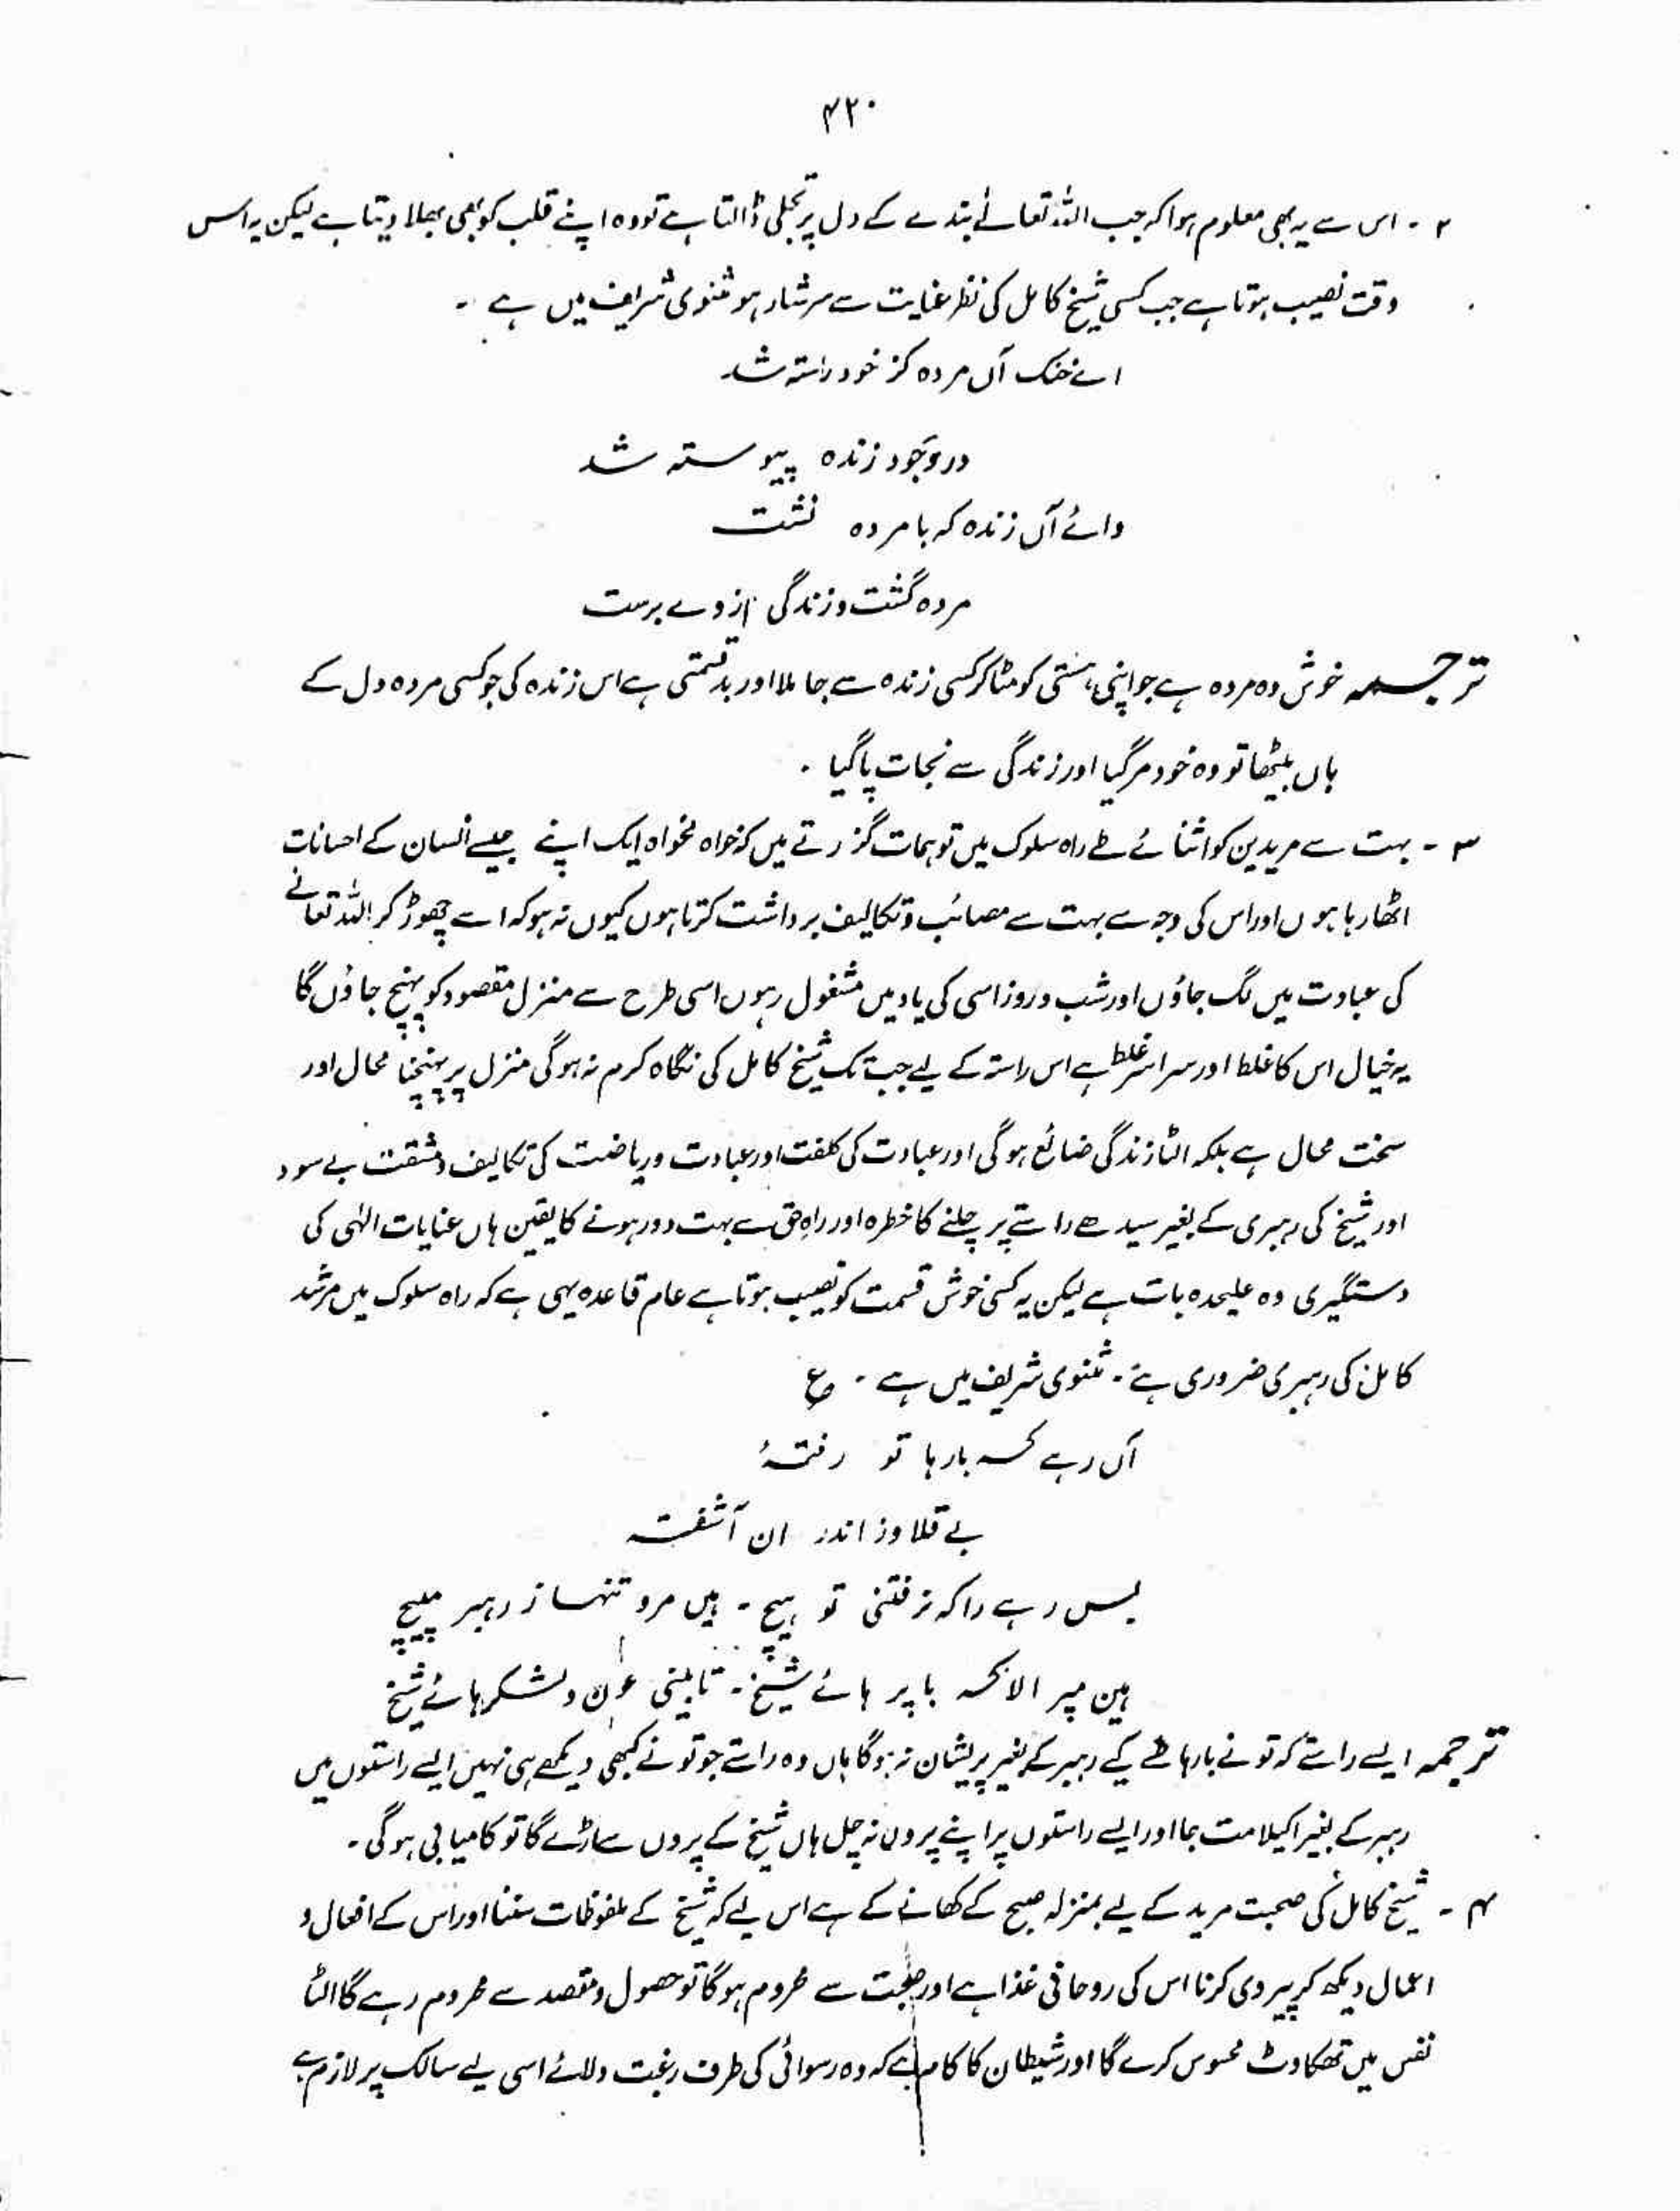 ۴۲۰
۲ - اس سے یہ بھی معلوم ہوا کہ جب اللہ تعالےٰ بندے کے دل پر تجلی ڈالتا ہے تو وہ اپنے قلب کو بھی بھلا دیتا ہے لیکن یہ اس
وقت نصیب ہوتا ہے جب کسی شیخ کامل کی نظر عنایت سے سرشار ہو مثنوی شریف میں ہے -
اے خنک آں مردہ کز خود رستہ شد
در وجود زندہ پیوستہ شد
وائے آں زندہ کہ با مردہ نشت
مردہ گشت و زندگی از وے برست
ترجمہ خوش وہ مردہ ہے جو اپنی ہستی کو مٹا کر کسی زندہ سے جا ملا اور بدقسمتی ہے اس زندہ کی جو کسی مردہ دل کے
ہاں بیٹھا تو وہ خود مر گیا اور زندگی سے نجات پا گیا .
۳ - بہت سے مریدین کو اثنائے طے راہ سلوک میں توہمات گزرتے ہیں کہ خواہ مخواہ ایک اپنے جیسے انسان کے احسانات
اٹھا رہا ہوں اور اس کی وجہ سے بہت سے مصائب و تکالیف برداشت کرتا ہوں کیوں نہ ہو کہ اسے چھوڑ کر اللہ تعالےٰ
کی عبادت میں لگ جاؤں اور شب و روز اسی کی یاد میں مشغول رہوں اسی طرح سے منزل مقصود کو پہنچ جاؤں گا
یہ خیال اس کا غلط اور سراسر غلط ہے اس راستہ کے لیے جب تک شیخ کامل کی نگاہ کرم نہ ہوگی منزل پر پہنچنا محال اور
سخت محال ہے بلکہ الٹا زندگی ضائع ہوگی اور عبادت کی کلفت اور عبادت و ریاضت کی تکالیف و مشقت بے سود
اور شیخ کی رہبری کے بغیر سیدھے راستے پر چلنے کا خطرہ اور راہ حق سے بہت دور ہونے کا یقین ہاں عنایات الٰہی کی
دستگیری وہ علیحدہ بات ہے لیکن یہ کسی خوش قسمت کو نصیب ہوتا ہے عام قاعدہ یہی ہے کہ راہ سلوک میں مرشد
کامل کی رہبری ضروری ہے - مثنوی شریف میں ہے - ع
آں رہے کہ بارہا تو رفتۂ
بے قلاوز اندر ان آشفتہ
بس رہے را کہ نرفتی تو ہیچ - ہیں مرو تنہا ز رہبر مپیچ
ہین مپر الا کہ با پر ہائے شیخ - تا بینی عون و لشکر ہائے شیخ
ترجمہ ایسے راستے کہ تو نے بارہا طے کیے رہبر کے بغیر پریشان نہ ہوگا ہاں وہ راستے جو تو نے کبھی دیکھے ہی نہیں ایسے راستوں میں
رہبر کے بغیر اکیلا مت جا اور ایسے راستوں پر اپنے پروں نہ چل ہاں شیخ کے پروں سے اڑے گا تو کامیابی ہوگی -
۴ - شیخ کامل کی صحبت مرید کے لیے بمنزلہ صبح کے کھانے کے ہے اس لیے کہ شیخ کے ملفوظات سننا اور اس کے افعال و
اعمال دیکھ کر پیروی کرنا اس کی روحانی غذا ہے اور صحبت سے محروم ہوگا تو حصول مقصد سے محروم رہے گا الٹا
نفس میں تھکاوٹ محسوس کرے گا اور شیطان کا کام ہے کہ وہ رسوائی کی طرف رغبت دلائے اسی لیے سالک پر لازم ہے